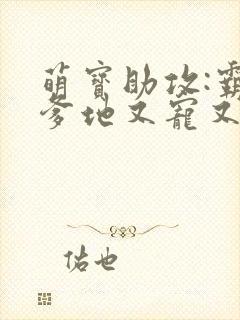 萌寳助攻:霸
爹地又寵又
佑也